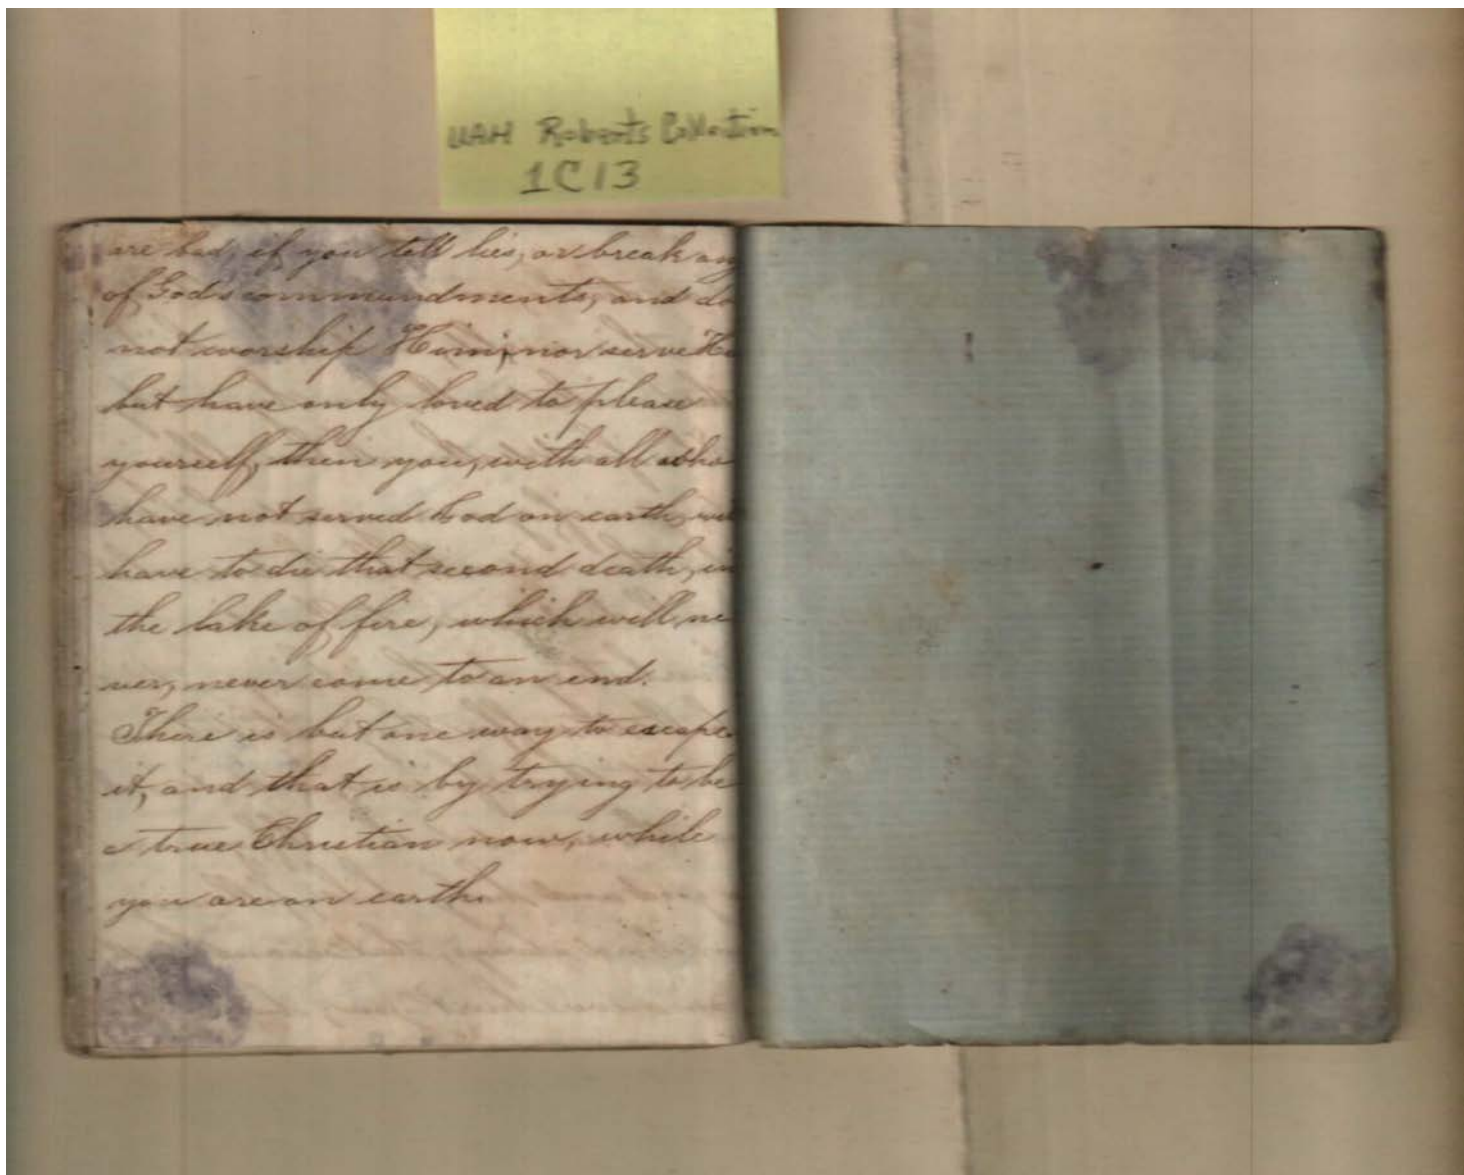 UAH Roberts Collection
1C13
are bad, if you tell lies, or break any
of God's commandments, and do
not worship Him, nor serve Hi
but have only loved to please
yourself, then you, with all who
have not served God on earth, wi
have to die that second death, in
the lake of fire, which will ne
ver, never come to an end.
There is but one way to escape
it, and that is by trying to be
a true Christian now, while
you are on earth.